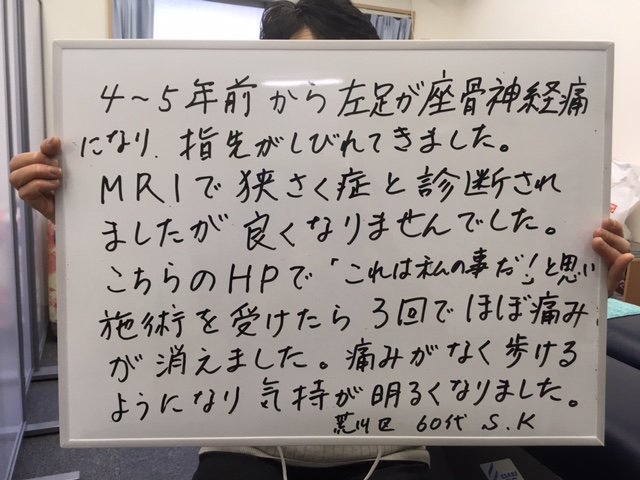 4~5年前から左足が座骨神経痛
になり、指先がしびれてきました。
MRIで狭さく症と診断され
ましたが良くなりませんでした。
こちらのHPで「これは私の事だ!」と思い
施術を受けたら3回でほぼ痛み
が消えました。痛みがなく歩ける
ようになり気持が明るくなりました。
荒川区 60代 S.K